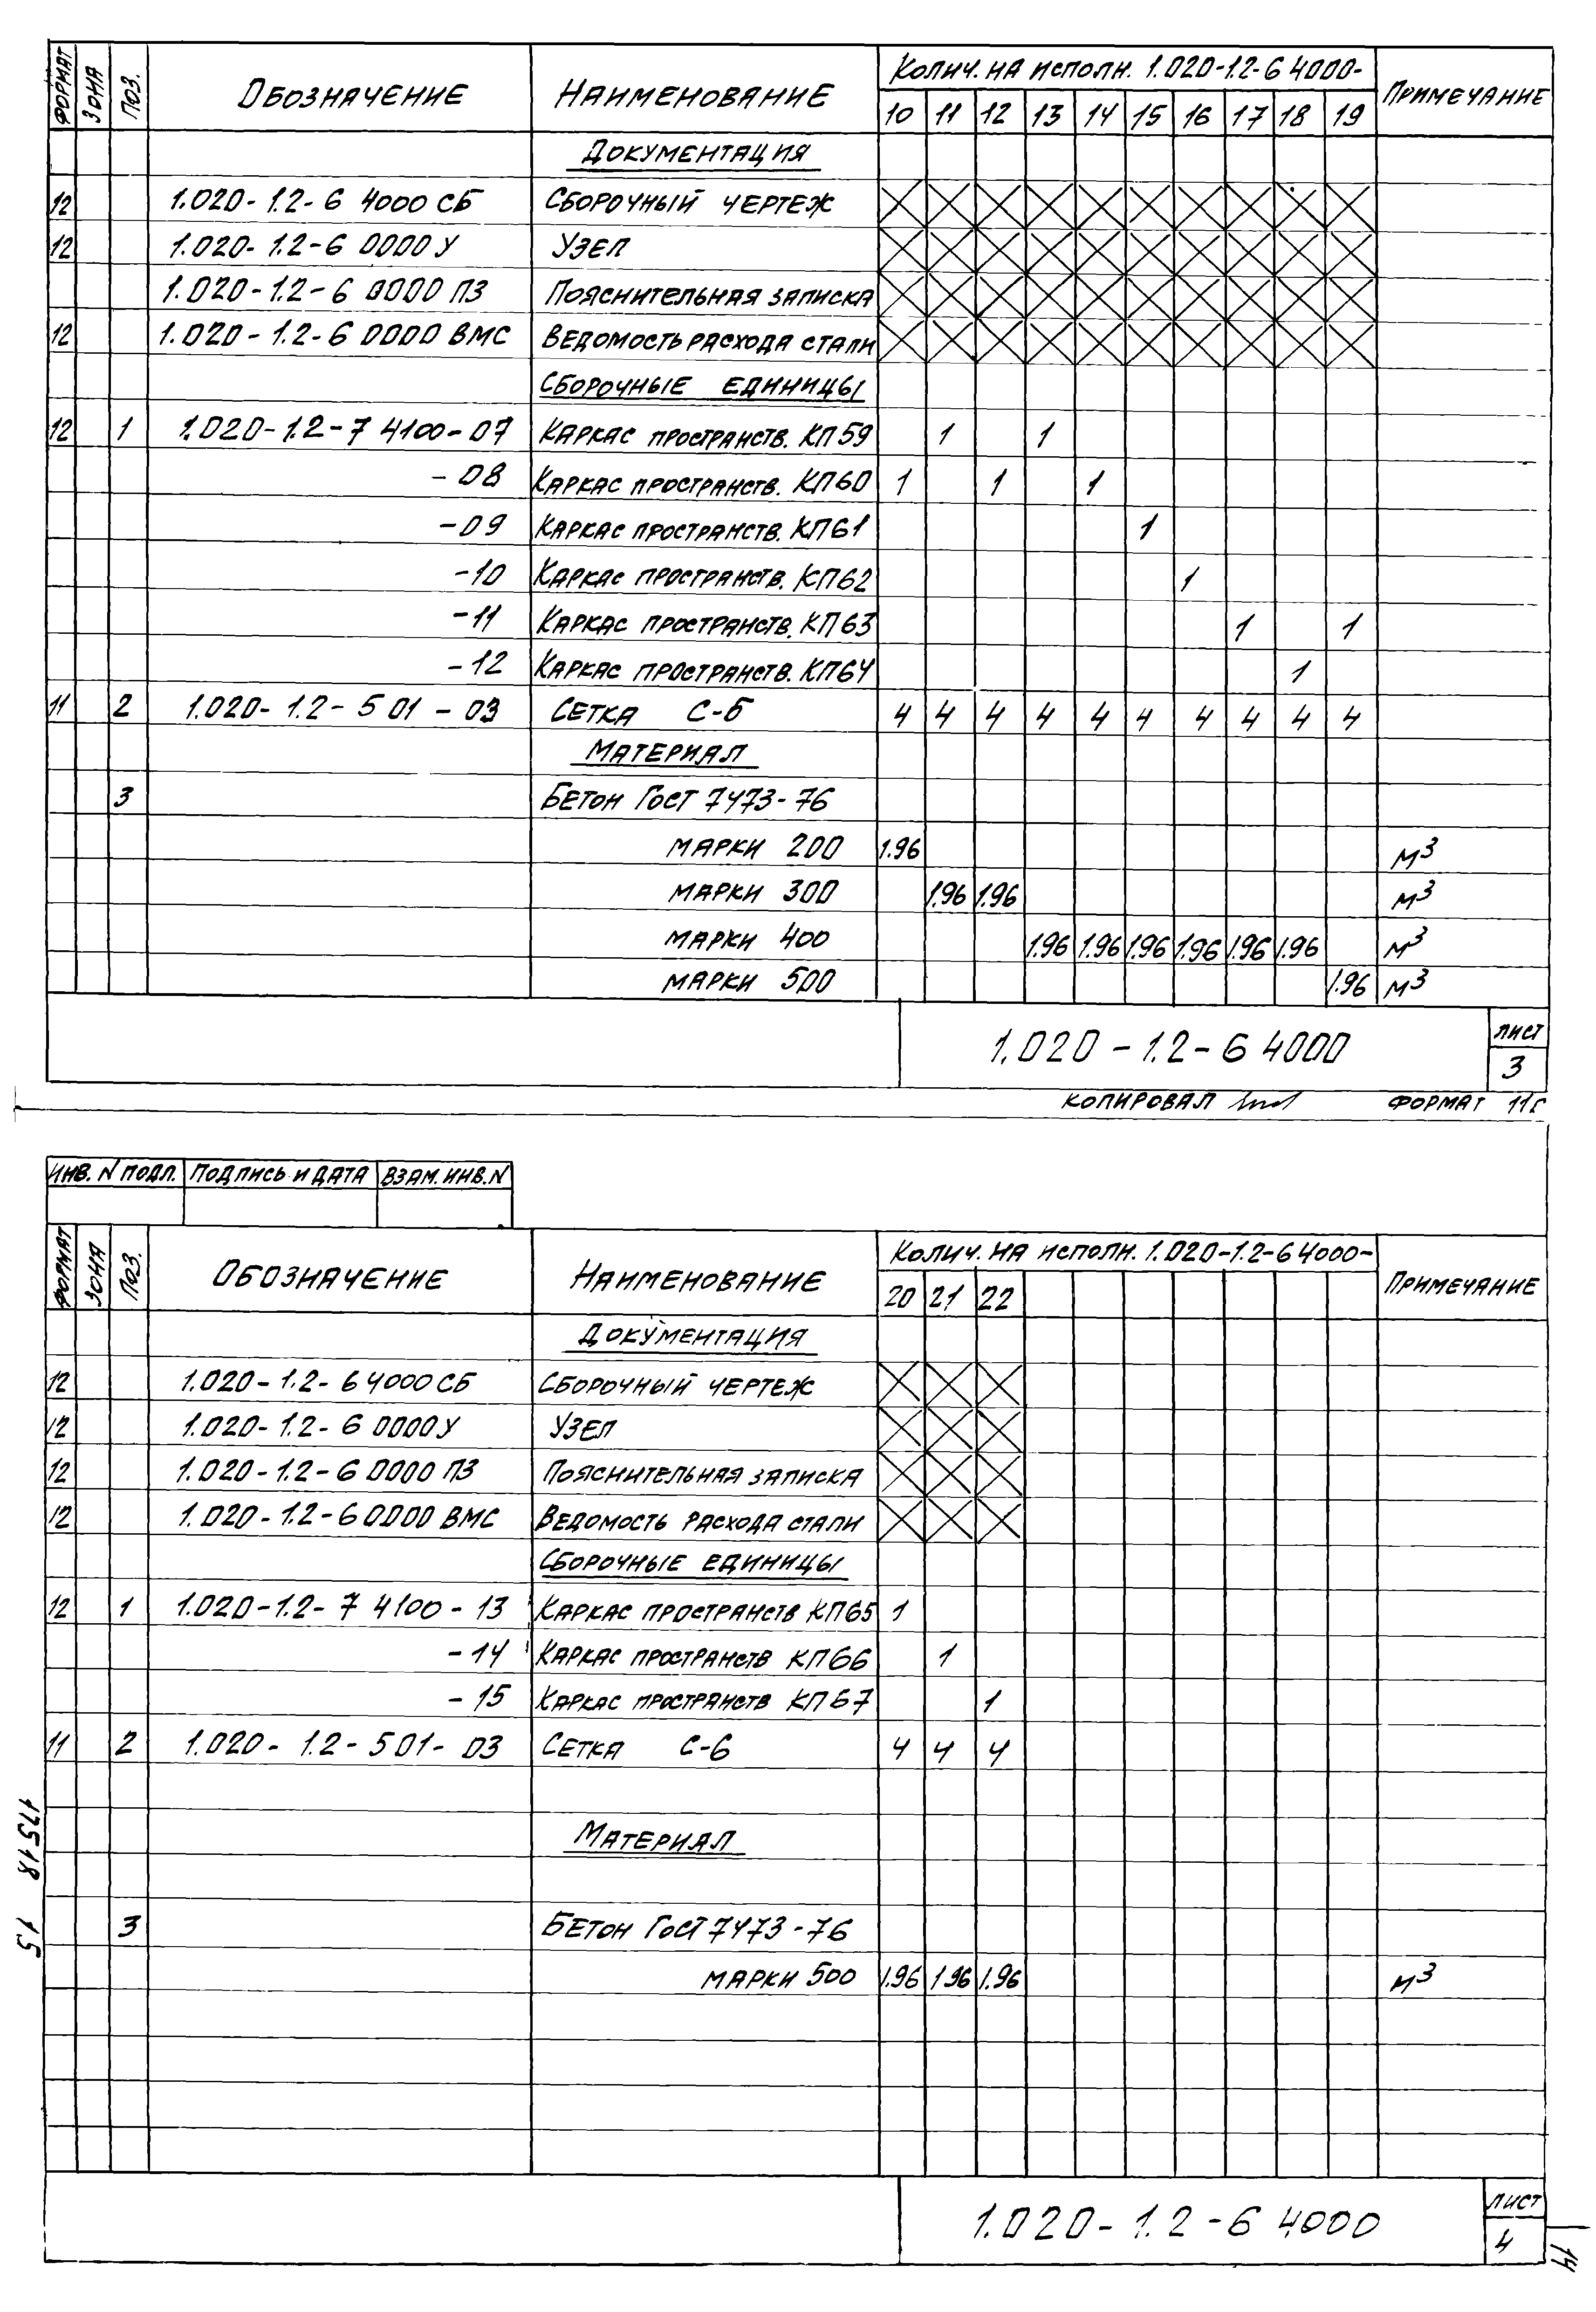 ФОРМАТ ЗОНА ПОЗ. ОБОЗНАЧЕНИЕ НАИМЕНОВАНИЕ КОЛИЧ. НА ИСПОЛН. 1.020-1.2-6 4000- ПРИМЕЧАНИЕ
10 11 12 13 14 15 16 17 18 19
ДОКУМЕНТАЦИЯ
12 1.020-1.2-6 4000 СБ СБОРОЧНЫЙ ЧЕРТЕЖ
12 1.020-1.2-6 0000 У УЗЕЛ
1.020-1.2-6 0000 ПЗ ПОЯСНИТЕЛЬНАЯ ЗАПИСКА
12 1.020-1.2-6 0000 ВМС ВЕДОМОСТЬ РАСХОДА СТАЛИ
СБОРОЧНЫЕ ЕДИНИЦЫ
12 1 1.020-1.2-7 4100-07 КАРКАС ПРОСТРАНСТВ. КП59 1 1
-08 КАРКАС ПРОСТРАНСТВ. КП60 1 1 1
-09 КАРКАС ПРОСТРАНСТВ. КП61 1
-10 КАРКАС ПРОСТРАНСТВ. КП62 1
-11 КАРКАС ПРОСТРАНСТВ. КП63 1 1
-12 КАРКАС ПРОСТРАНСТВ. КП64 1
11 2 1.020-1.2-5 01-03 СЕТКА С-6 4 4 4 4 4 4 4 4 4 4
МАТЕРИАЛ
3 БЕТОН ГОСТ 7473-76
МАРКИ 200 1.96 М³
МАРКИ 300 1.96 1.96 М³
МАРКИ 400 1.96 1.96 1.96 1.96 1.96 1.96 М³
МАРКИ 500 1.96 М³
1.020-1.2-6 4000 ЛИСТ
3
КОПИРОВАЛ ФОРМАТ 11Г
ИНВ. N ПОДЛ. ПОДПИСЬ И ДАТА ВЗАМ. ИНВ. N
ФОРМАТ ЗОНА ПОЗ. ОБОЗНАЧЕНИЕ НАИМЕНОВАНИЕ КОЛИЧ. НА ИСПОЛН. 1.020-1.2-6 4000- ПРИМЕЧАНИЕ
20 21 22
ДОКУМЕНТАЦИЯ
12 1.020-1.2-6 4000 СБ СБОРОЧНЫЙ ЧЕРТЕЖ
12 1.020-1.2-6 0000 У УЗЕЛ
12 1.020-1.2-6 0000 ПЗ ПОЯСНИТЕЛЬНАЯ ЗАПИСКА
12 1.020-1.2-6 0000 ВМС ВЕДОМОСТЬ РАСХОДА СТАЛИ
СБОРОЧНЫЕ ЕДИНИЦЫ
12 1 1.020-1.2-7 4100-13 КАРКАС ПРОСТРАНСТВ КП65 1
-14 КАРКАС ПРОСТРАНСТВ КП66 1
-15 КАРКАС ПРОСТРАНСТВ КП67 1
11 2 1.020-1.2-5 01-03 СЕТКА С-6 4 4 4
МАТЕРИАЛ
3 БЕТОН ГОСТ 7473-76
МАРКИ 500 1.96 1.96 1.96 М³
1.020-1.2-6 4000 ЛИСТ
4
17518 15
14